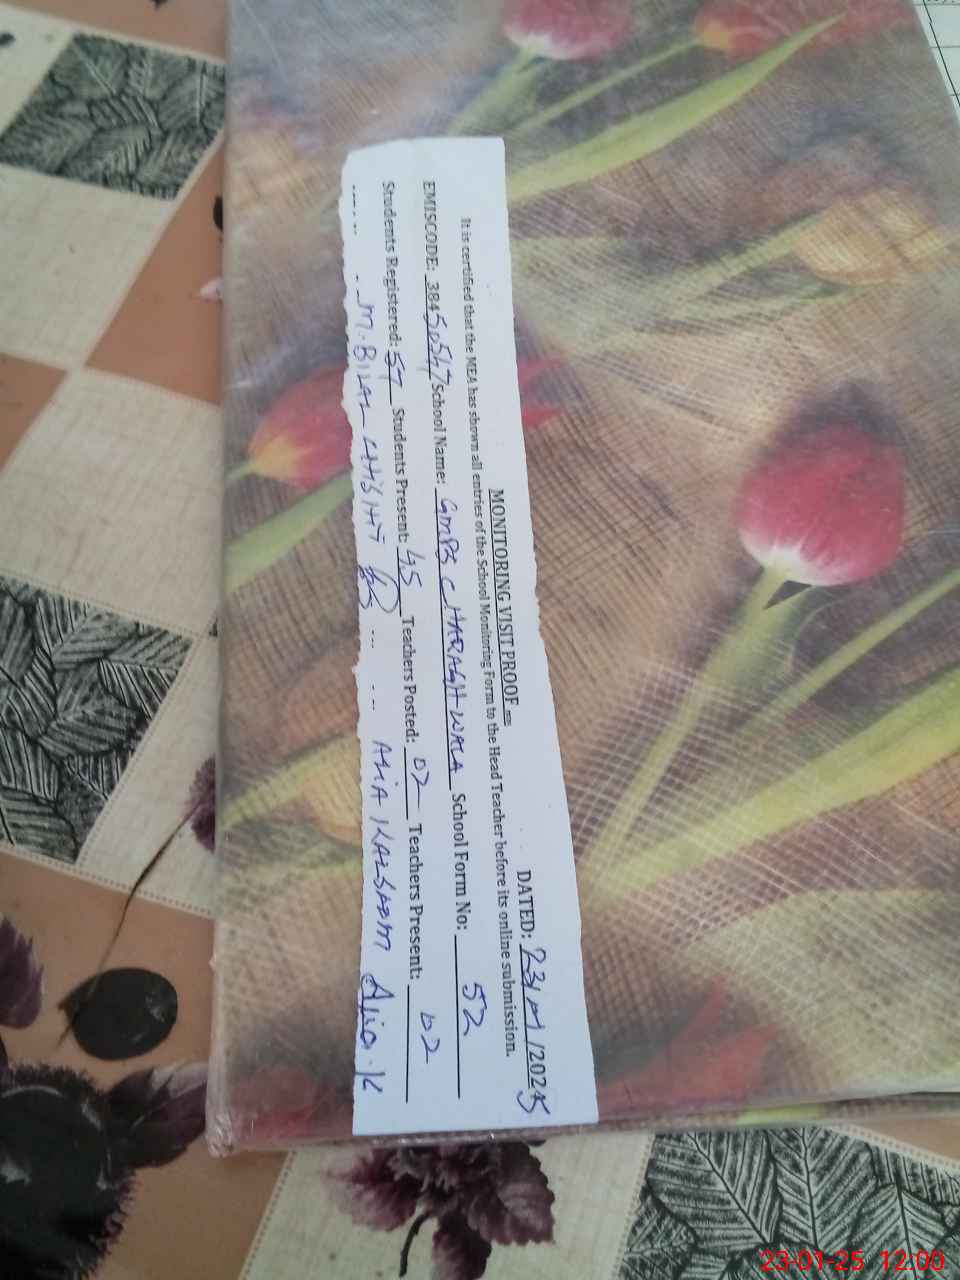 MONITORING VISIT PROOF
DATED: 23/01/2025
It is certified that the MEA has shown all entries of the School Monitoring Form to the Head Teacher before its online submission.
EMISCODE: 38450547 School Name: GMPS CHARAGH WALA School Form No: 52
Students Registered: 57 Students Present: 45 Teachers Posted: 02 Teachers Present: 02
M. BILAL CHISHTI ASIA KALSOOM Asia.K
23-01-25 12:00